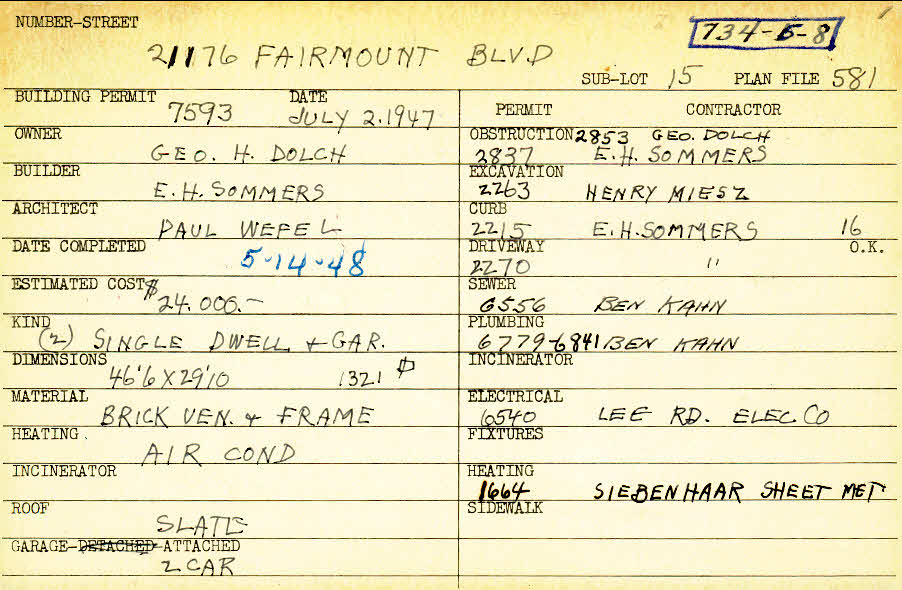 NUMBER-STREET
734-5-8
21176 FAIRMOUNT BLVD
SUB-LOT 15 PLAN FILE 581
BUILDING PERMIT 7593 DATE JULY 2.1947
OWNER
GEO. H. DOLCH
BUILDER
E.H. SOMMERS
ARCHITECT
PAUL WEFEL
DATE COMPLETED
5-14-48
ESTIMATED COST $
24.000.-
KIND
(2) SINGLE DWELL + GAR.
DIMENSIONS
46'6 X 29'10 1321 ⌷
MATERIAL
BRICK VEN. + FRAME
HEATING.
AIR COND
INCINERATOR
ROOF
SLATE
GARAGE-DETACHED-ATTACHED
2 CAR
PERMIT CONTRACTOR
OBSTRUCTION 2853 GEO. DOLCH
2837 E.H. SOMMERS
EXCAVATION
2263 HENRY MIESZ
CURB
2215 E.H. SOMMERS 16
DRIVEWAY O.K.
2270 "
SEWER
6556 BEN KAHN
PLUMBING
6779-6841 BEN KAHN
INCINERATOR
ELECTRICAL
6540 LEE RD. ELEC. CO
FIXTURES
HEATING
1664 SIEBENHAAR SHEET MET
SIDEWALK